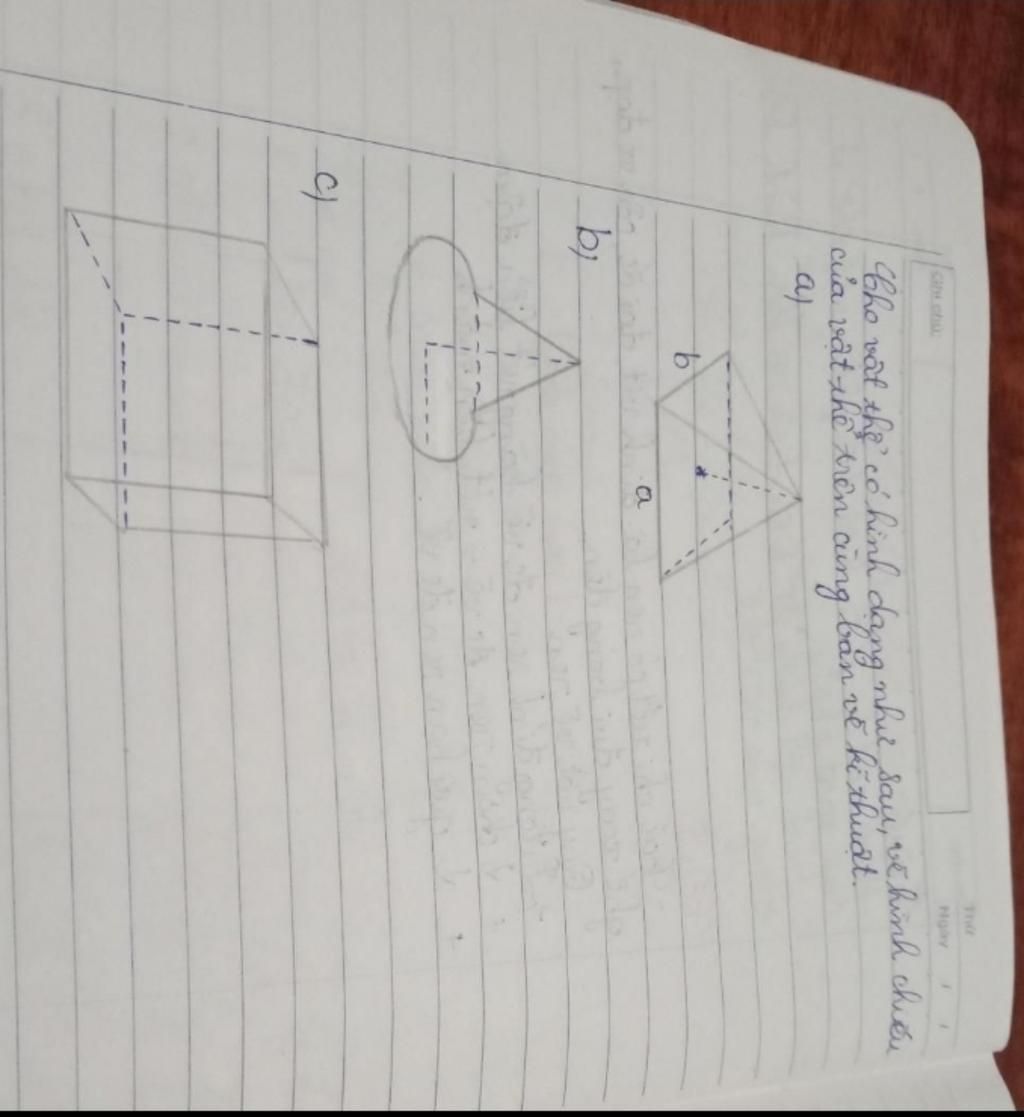 Ghi chú:
Thứ
Ngày / /
Cho vật thể có hình dạng như sau, vẽ hình chiếu
của vật thể trên cùng bản vẽ kĩ thuật.
a)
b
a
b)
c)